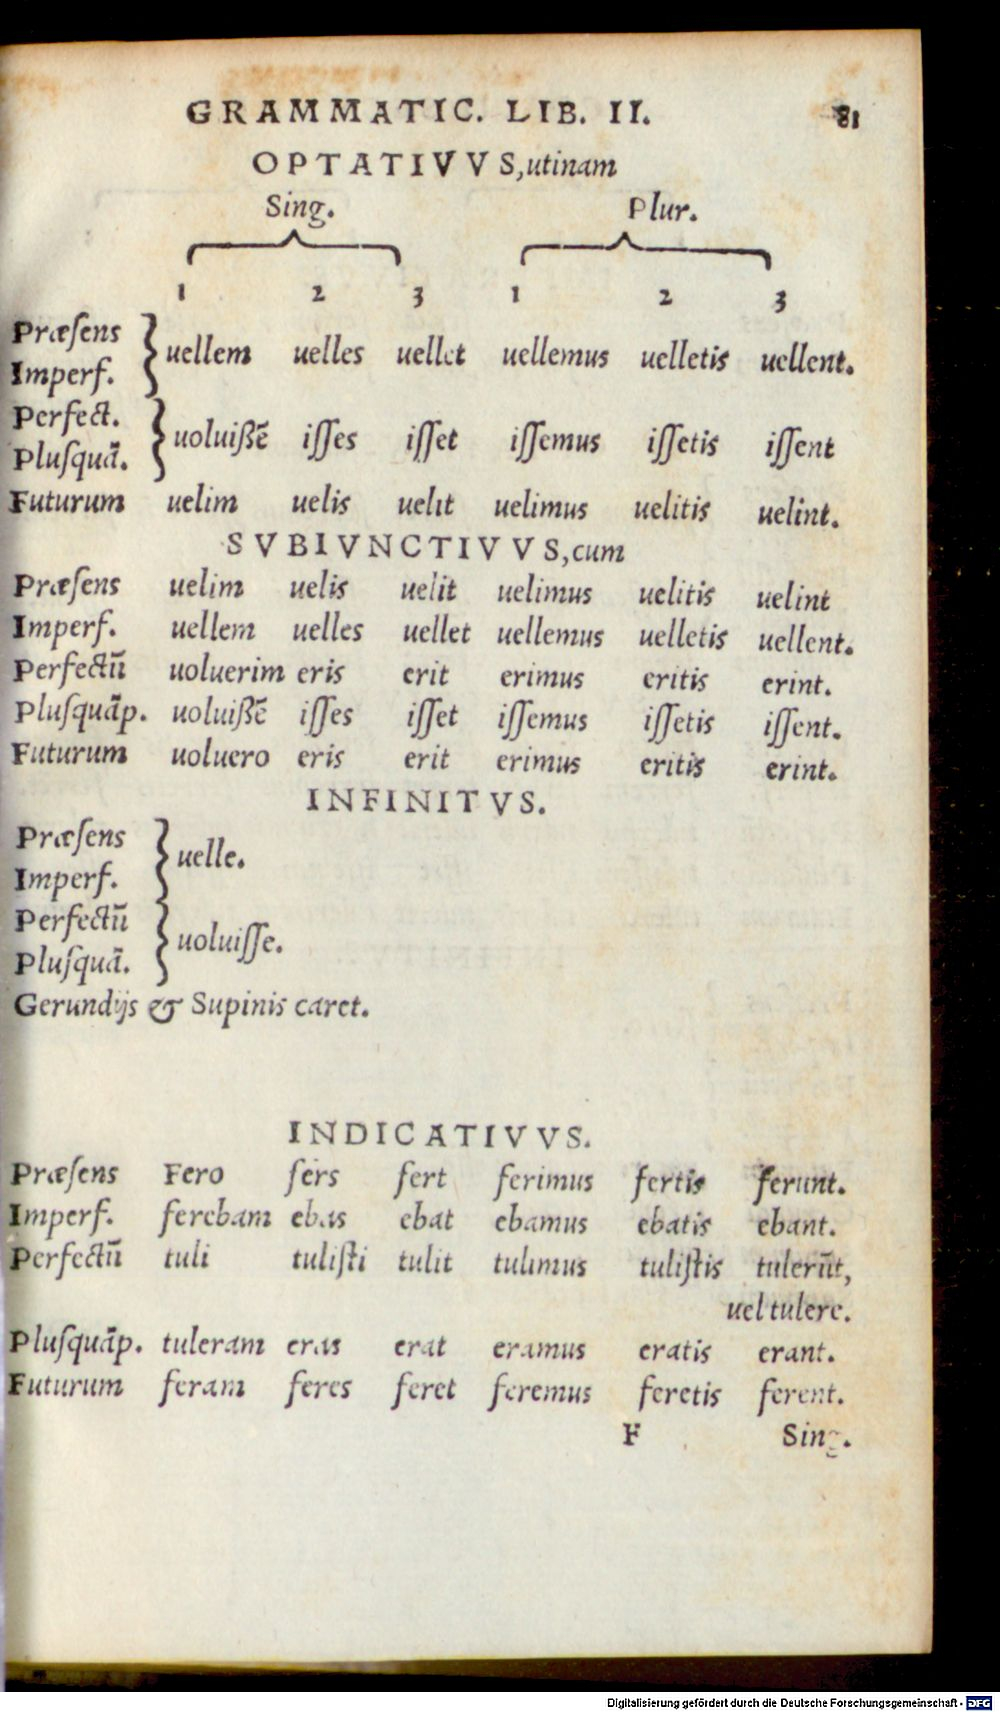 GRAMMATIC. LIB. II. 81
OPTATIVVS, utinam
Sing. Plur.
1 2 3 1 2 3
Præſens
Imperf. } uellem uelles uellet uellemus uelletis uellent.
Perfect.
Pluſquā. } uoluißē iſſes iſſet iſſemus iſſetis iſſent
Futurum uelim uelis uelit uelimus uelitis uelint.
SVBIVNCTIVVS, cum
Præſens uelim uelis uelit uelimus uelitis uelint
Imperf. uellem uelles uellet uellemus uelletis uellent.
Perfectū uoluerim eris erit erimus eritis erint.
Pluſquāp. uoluißē iſſes iſſet iſſemus iſſetis iſſent.
Futurum uoluero eris erit erimus eritis erint.
INFINITVS.
Præſens
Imperf. } uelle.
Perfectū
Pluſquā. } uoluiſſe.
Gerundijs & Supinis caret.
INDICATIVVS.
Præſens Fero fers fert ferimus fertis ferunt.
Imperf. ferebam ebas ebat ebamus ebatis ebant.
Perfectū tuli tuliſti tulit tulimus tuliſtis tulerūt,
uel tulere.
Pluſquāp. tuleram eras erat eramus eratis erant.
Futurum feram feres feret feremus feretis ferent.
F Sing.
Digitalisierung gefördert durch die Deutsche Forschungsgemeinschaft - DFG